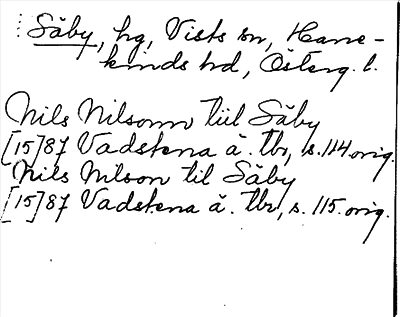 Säby, hg, Vists sn, Hane-
kinds hd, Österg. l.
Nils Nilsonn tiil Säby
[15]87 Vadstena ä. tb, s. 114 orig.
Nils Nilson til Säby
[15]87 Vadstena ä. tb, s. 115. orig.